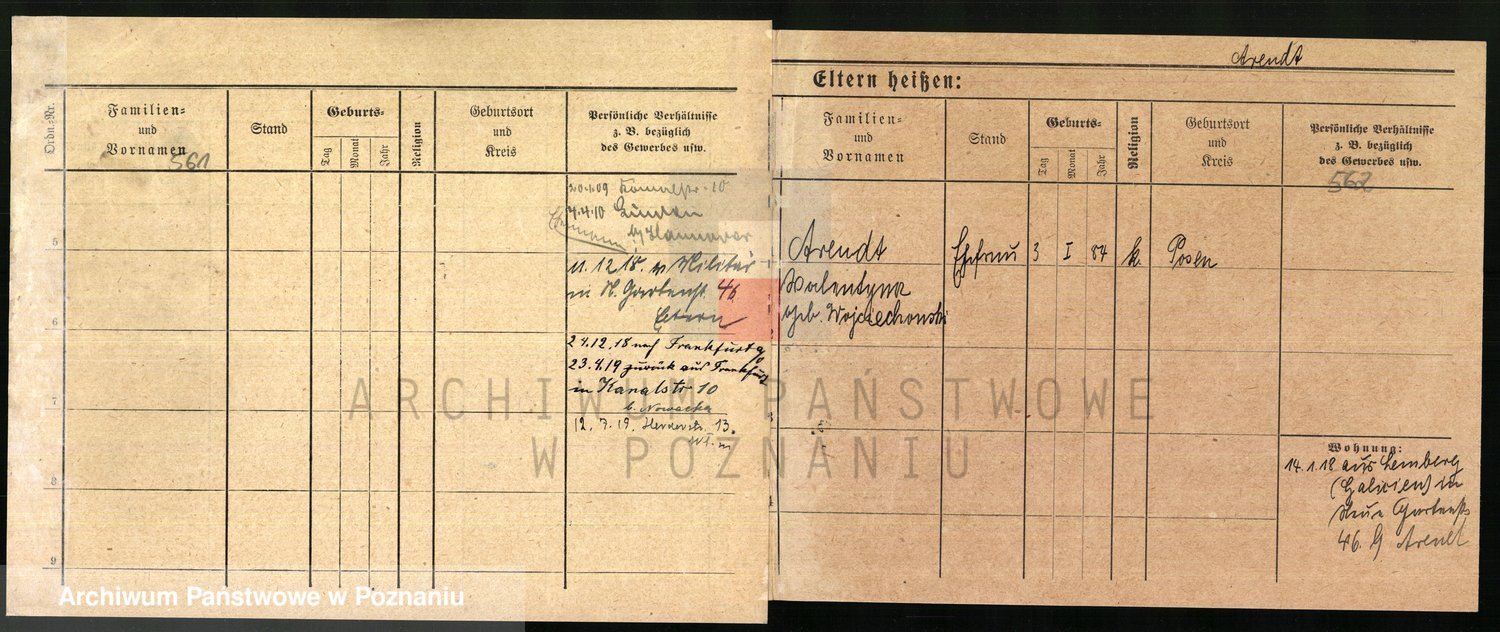 Ordn.-Nr.
Familien-
und
Vornamen
561
Stand
Geburts-
Tag
Monat
Jahr
Religion
Geburtsort
und
Kreis
Persönliche Verhältnisse
z. B. bezüglich
des Gewerbes usw.
10
4.4.10 Linden
by Hannover
5
11.12.18. v Militär
in N. Gartenstr 46
Eltern
6
24.12.18 nach Frankfurt
23.4.19 zurück aus Frankfurt
in Kanalstr 10
7
b. Nowacka
12.7.19. Herderstr. 13.
8
9
Arendt
Eltern heißen:
Familien-
und
Vornamen
Stand
Geburts-
Tag
Monat
Jahr
Religion
Geburtsort
und
Kreis
Persönliche Verhältnisse
z. B. bezüglich
des Gewerbes usw.
562
Arendt Ehefrau 3 I 84 k. Posen
Walentyna
geb. Wojciechowski
Wohnung:
14.1.18 aus Lemberg
(Galicien) in
Neue Gartenstr
46. G Arendt
ARCHIWUM PAŃSTWOWE
W POZNANIU
Archiwum Państwowe w Poznaniu